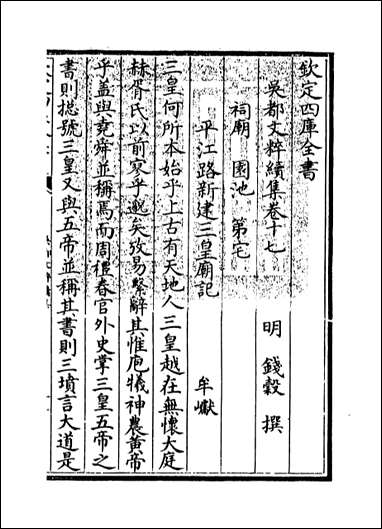 欽定四庫全書
吳都文粹續集卷十七
明 錢穀 撰
祠廟 園池 第宅
平江路新建三皇廟記 牟巘
三皇何所本始乎上古有天地人三皇越在無懷大庭
赫胥氏以前寥乎邈矣攷易繫辭其惟庖犧神農黄帝
乎葢與堯舜並稱焉而周禮春官外史掌三皇五帝之
書則揔號三皇又與五帝並稱其書則三墳言大道是